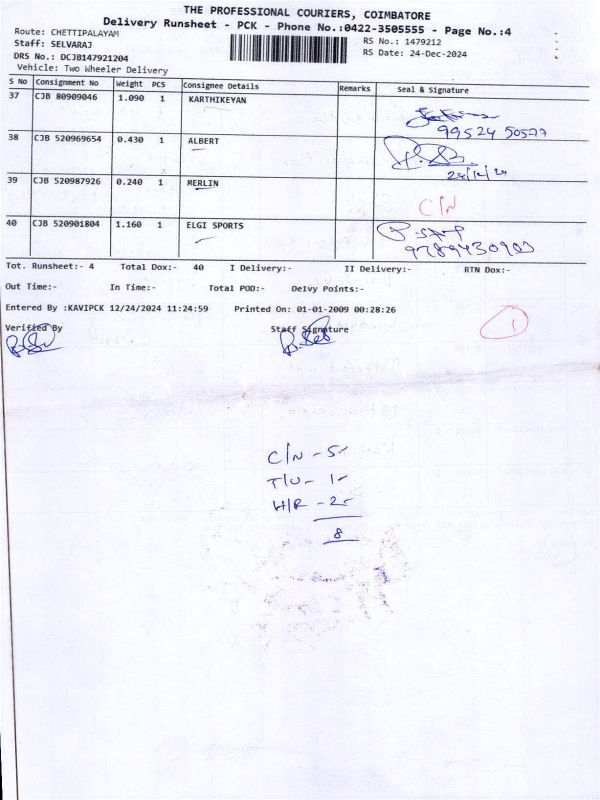 THE PROFESSIONAL COURIERS, COIMBATORE
Delivery Runsheet - PCK - Phone No.:0422-3505555 - Page No.:4
Route: CHETTIPALAYAM
Staff: SELVARAJ RS No.: 1479212
DRS No.: DCJB147921204 RS Date: 24-Dec-2024
Vehicle: Two Wheeler Delivery
S No Consignment No Weight PCS Consignee Details Remarks Seal & Signature
37 CJB 80909046 1.090 1 KARTHIKEYAN
99524 50577
38 CJB 520969654 0.430 1 ALBERT
24/12/24
39 CJB 520987926 0.240 1 MERLIN
C/N
40 CJB 520901804 1.160 1 ELGI SPORTS
Tot. Runsheet:- 4 Total Dox:- 40 I Delivery:- II Delivery:- RTN Dox:-
Out Time:- In Time:- Total POD:- Delvy Points:-
Entered By :KAVIPCK 12/24/2024 11:24:59 Printed On: 01-01-2009 00:28:26
1
Verified By Staff Signature
C/N - 5
T/U - 1
H/R - 2
8